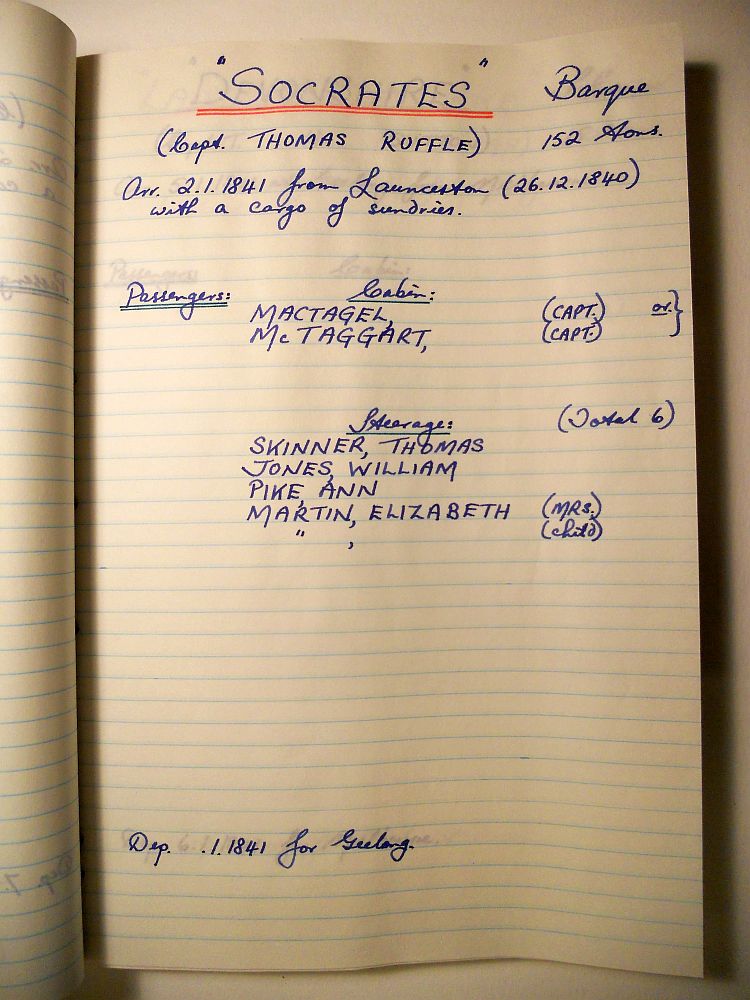 "SOCRATES" Barque
(Capt. THOMAS RUFFLE) 152 tons.
Arr. 2.1.1841 from Launceston (26.12.1840)
with a cargo of sundries.
Passengers: Cabin:
MACTAGEL, (CAPT.) or }
McTAGGART, (CAPT.)
Steerage: (Total 6)
SKINNER, THOMAS
JONES, WILLIAM
PIKE, ANN
MARTIN, ELIZABETH (MRS.)
" , (child)
Dep. .1.1841 for Geelong.